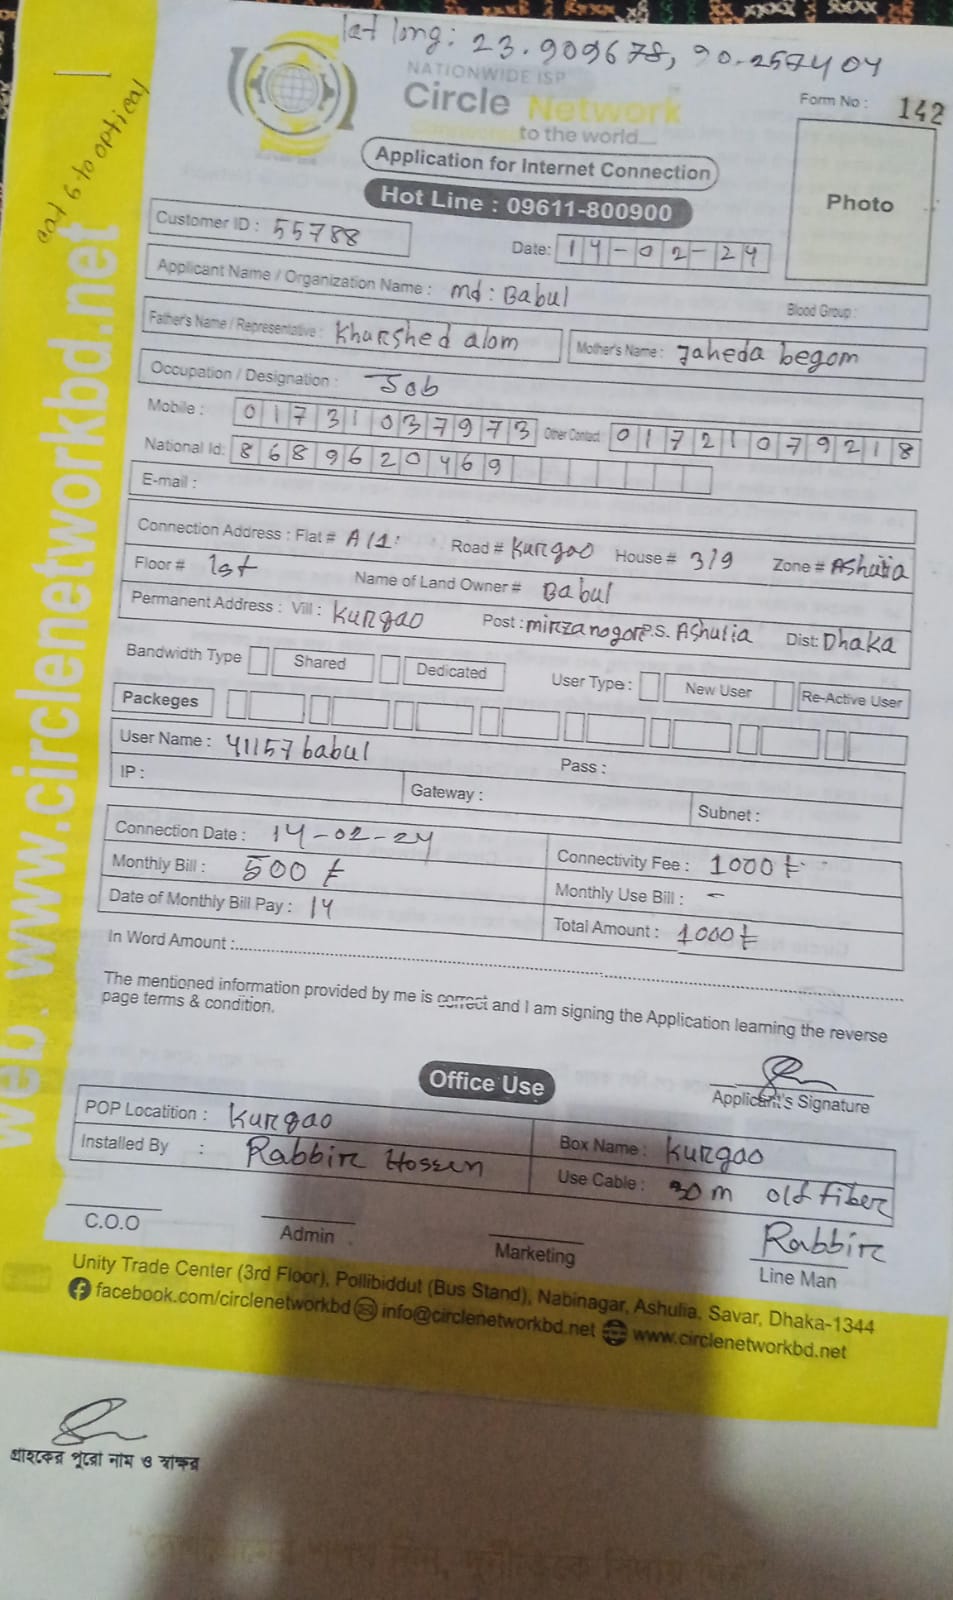 lat long: 23.909678, 90.257404
NATIONWIDE ISP
Circle Network
to the world....
Form No : 142
cat 6 to optical
Application for Internet Connection
Hot Line : 09611-800900
Photo
Customer ID : 55788
Date: 14-02-24
Applicant Name / Organization Name : md: Babul
Blood Group :
Father's Name / Representative : Khurshed alom
Mother's Name : Jaheda begom
Occupation / Designation : Job
Mobile : 01731037973 Other Contact 01721079218
National Id: 8689620469
E-mail :
Connection Address : Flat # A/1 Road # Kurgao House # 319 Zone # Ashulia
Floor # 1st Name of Land Owner # Babul
Permanent Address : Vill : Kurgao Post : mirzanogor P.S. Ashulia Dist: Dhaka
Bandwidth Type Shared Dedicated User Type : New User Re-Active User
Packeges
User Name : 41157babul Pass :
IP : Gateway : Subnet :
Connection Date : 14-02-24 Connectivity Fee : 1000 ৳
Monthly Bill : 500 ৳ Monthly Use Bill : -
Date of Monthly Bill Pay : 14 Total Amount : 1000 ৳
In Word Amount :
The mentioned information provided by me is correct and I am signing the Application learning the reverse
page terms & condition.
Applicant's Signature
Office Use
POP Locatition : Kurgao Box Name : Kurgao
Installed By : Rabbir Hossen Use Cable : 30m old fiber
Rabbir
C.O.O Admin Marketing Line Man
Unity Trade Center (3rd Floor), Pollibiddut (Bus Stand), Nabinagar, Ashulia, Savar, Dhaka-1344
facebook.com/circlenetworkbd info@circlenetworkbd.net www.circlenetworkbd.net
web: www.circlenetworkbd.net
গ্রাহকের পুরো নাম ও স্বাক্ষর